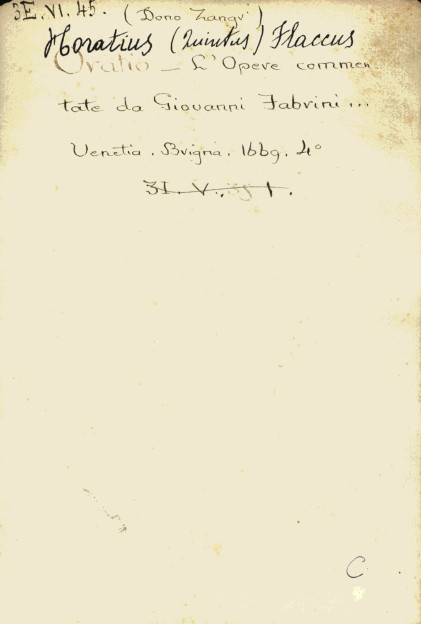 3E.VI.45. (Dono Zangri)
Horatius (Quintus) Flaccus
Oratio _ L'Opere commen
tate da Giovanni Fabrini ...
Venetia. Brigna. 1669. 4°
3I. V. 1.
C